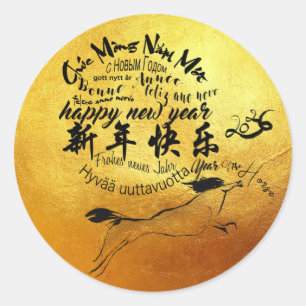 Chúc Mừng Năm Mới
С НОВЫМ ГОДОМ
gott nytt år Année
Bonne feliz ano novo
felice anno nuovo
happy new year
2026
新年快乐
Frohes neues Jahr
Year of the Horse
Hyvää uuttavuotta